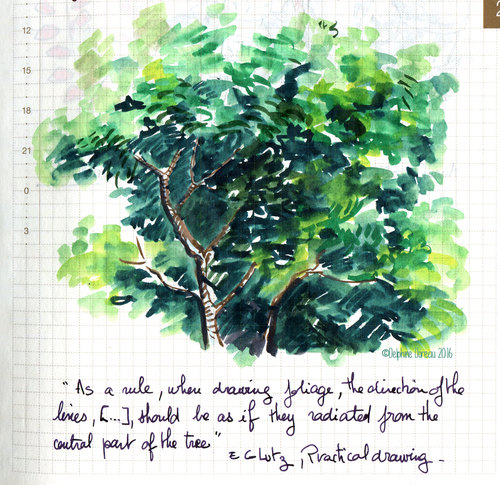 12
15
18
21
0
3
2
©Delphine Doreau 2016
"As a rule, when drawing foliage, the direction of the
lines, [...], should be as if they radiated from the
central part of the tree"
E G Lutz, Practical drawing -